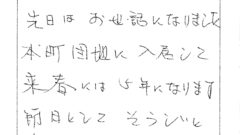 先日は お世話になりました
本町団地に 入居して
来春には 15年になります
節目として そうじいと